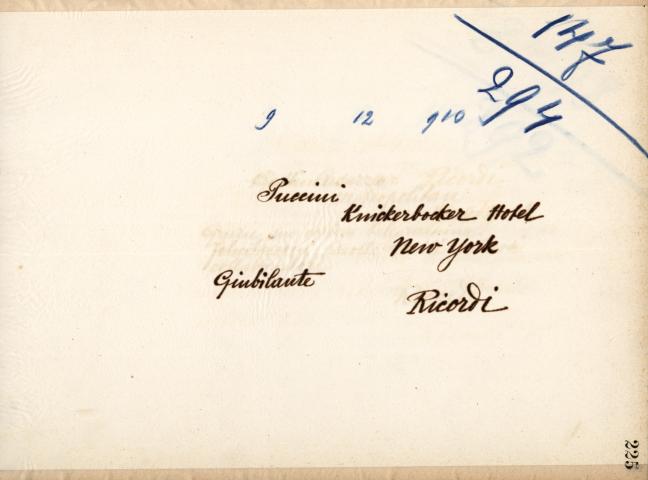 147
294
9 12 910
Puccini
Knickerbocker Hotel
New York
Giubilante
Ricordi
225